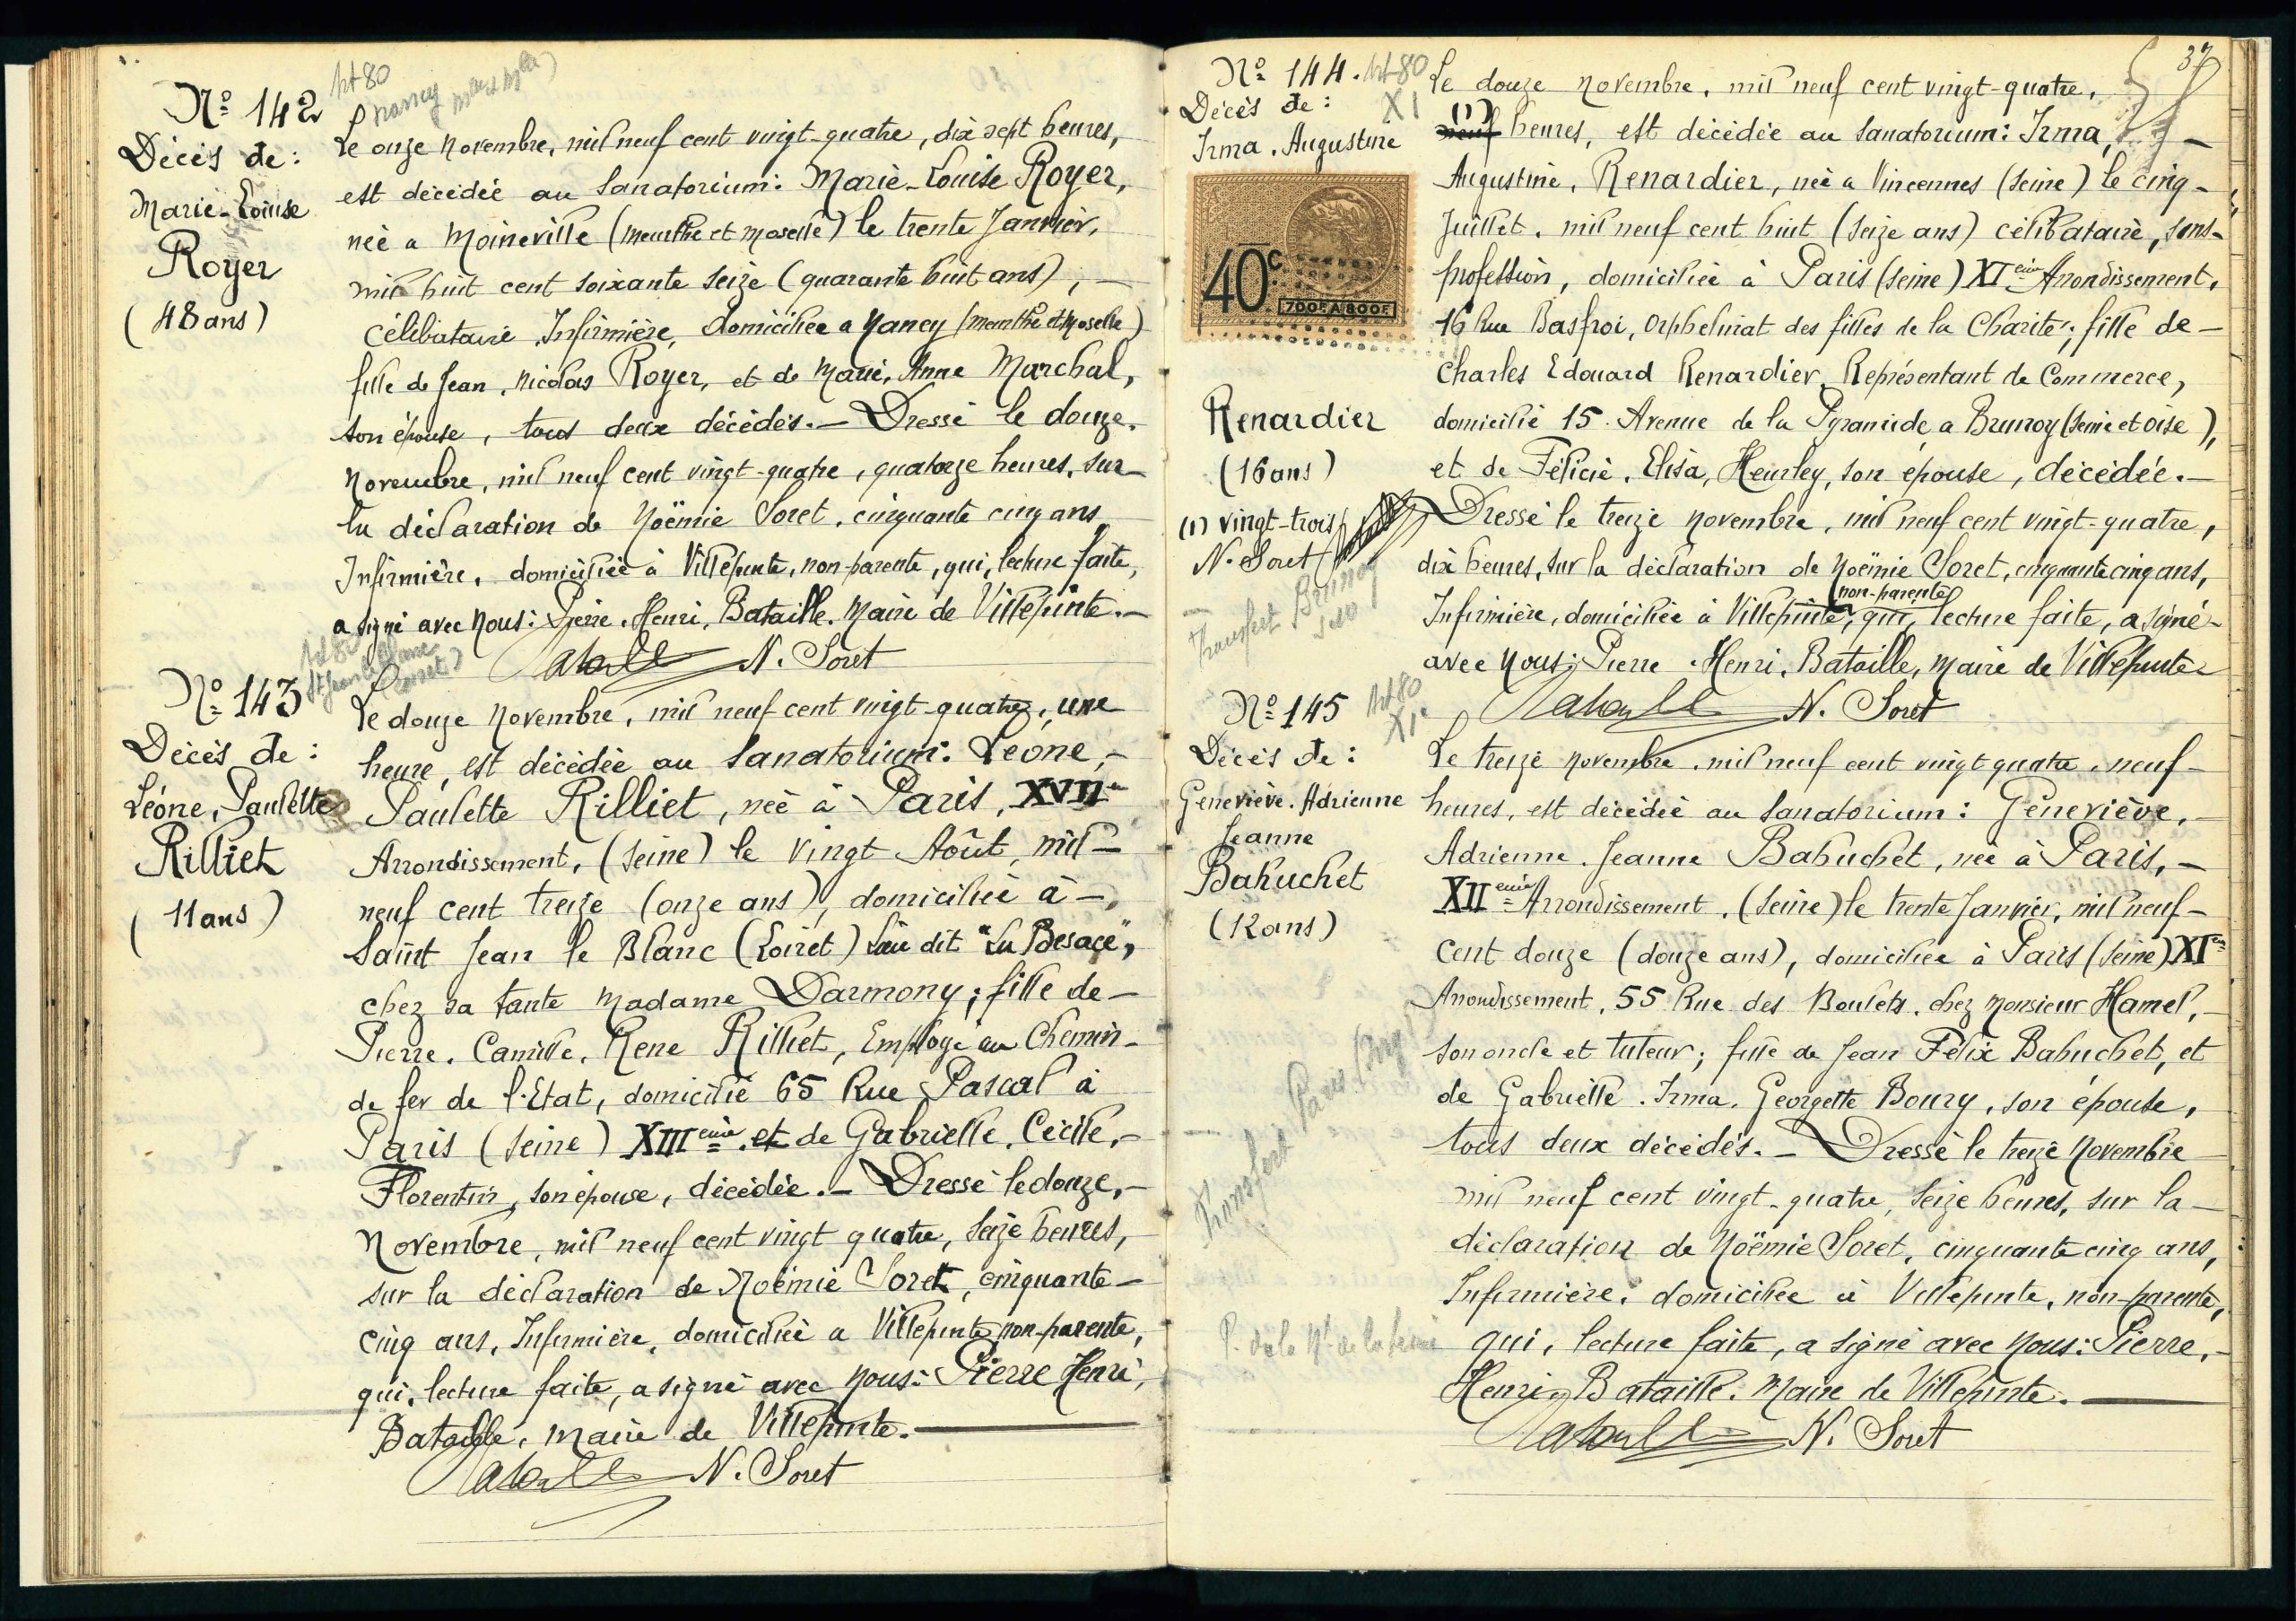 Nº 142
Décès de :
Marie-Louise
Royer
(48 ans)
Art 80
Nancy
Le onze Novembre, mil neuf cent vingt-quatre, dix sept heures,
est décédée au Sanatorium: Marie-Louise Royer,
née a Moineville (Meurthe et Moselle) le trente Janvier,
mil huit cent soixante seize (quarante huit ans), —
Célibataire, Infirmière, domiciliée a Nancy (Meurthe et Moselle)
fille de Jean, Nicolas Royer, et de Marie, Anne Marchal,
son épouse, tous deux décédés. — Dressé le douze,
Novembre, mil neuf cent vingt-quatre, quatorze heures, sur
la déclaration de Noëmie Soret, cinquante cinq ans,
Infirmière, domiciliée à Villepinte, non-parente, qui, lecture faite,
a signé avec Nous: Pierre, Henri, Bataille, Maire de Villepinte. —
Bataille N. Soret
Nº 143
Décès de :
Léone, Paulette
Rilliet
(11 ans)
Art 80
St Jean le Blanc
Loiret
Le douze Novembre, mil neuf cent vingt-quatre, une
heure, est décédée au Sanatorium: Léone, —
Paulette Rilliet, née à Paris, XVII
Arrondissement, (Seine) le vingt Août, mil —
neuf cent treize (onze ans), domiciliée à —
Saint Jean le Blanc (Loiret) Lieu dit "La Besace",
chez sa tante Madame Darmony; fille de —
Pierre, Camille, Rene Rilliet, Employé au Chemin —
de fer de l'Etat, domicilié 65 Rue Pascal à
Paris (Seine) XIII eme et de Gabrielle, Cécile, —
Florentin, son épouse, décédée. — Dressé le douze, —
Novembre, mil neuf cent vingt quatre, seize heures,
sur la déclaration de Noëmie Soret, cinquante —
cinq ans, Infirmière, domiciliée a Villepinte, non-parente,
qui, lecture faite, a signé avec Nous: Pierre Henri,
Bataille, Maire de Villepinte. —
Bataille N. Soret
37
Nº 144.
Décès de :
Irma, Augustine
40c
700F A 800F
Renardier
(16 ans)
(1) vingt-trois
N. Soret
Transfert Brunoy
S&O
Art 80
XI
Le douze Novembre, mil neuf cent vingt-quatre,
(1)
neuf heures, est décédée au Sanatorium: Irma, —
Augustine, Renardier, née a Vincennes (Seine) le cinq —
Juillet, mil neuf cent huit (seize ans) célibataire, sans —
profession, domiciliée à Paris (Seine) XI eme Arrondissement,
16 Rue Basfroi, Orphelinat des filles de la Charité; fille de —
Charles Edouard Renardier, Représentant de Commerce,
domicilié 15 Avenue de la Pyramide, a Brunoy (Seine et Oise),
et de Félicie, Elisa, Heurley, son épouse, décédée. —
Dressé le treize Novembre, mil neuf cent vingt-quatre,
dix heures, sur la déclaration de Noëmie Soret, cinquante cinq ans,
non-parente
Infirmière, domiciliée à Villepinte, qui, lecture faite, a signé —
avec Nous; Pierre, Henri, Bataille, Maire de Villepinte
Bataille N. Soret
Nº 145
Décès de :
Geneviève, Adrienne
Jeanne
Bahuchet
(12 ans)
Art 80
XI
Transfert Paris
Le treize Novembre, mil neuf cent vingt quatre, neuf —
heures, est décédée au Sanatorium: Geneviève, —
Adrienne, Jeanne Bahuchet, née à Paris, —
XII eme Arrondissement, (Seine) le trente Janvier, mil neuf —
cent douze (douze ans), domiciliée à Paris (Seine) XI em
Arrondissement, 55 Rue des Boulets, chez Monsieur Hamel, —
son oncle et tuteur; fille de Jean Félix Bahuchet, et
de Gabrielle, Irma, Georgette Boury, son épouse,
tous deux décédés. — Dressé le treize Novembre
mil neuf cent vingt-quatre, seize heures, sur la —
déclaration de Noëmie Soret, cinquante cinq ans,
Infirmière, domiciliée à Villepinte, non-parente,
qui, lecture faite, a signé avec Nous: Pierre, —
Henri, Bataille, Maire de Villepinte. —
Bataille N. Soret